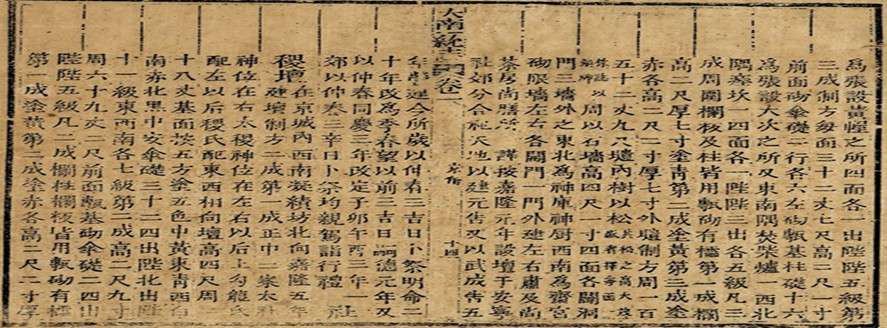 爲張設黃幄之所四面各一出陛陛五級第
三成制方每面三十二丈七尺高二尺一寸
前面砌傘礎二行各六左砌甎基柱礎十六
爲張設大次之所及東南隅焚柴爐一西北
隅瘞坎一四面各一陛陛三出各五級凡三
成周圍欄板及柱皆用甎砌有櫺第一成欄
高二尺厚七寸塗青第二成塗黃第三成塗
赤各高二尺二寸厚七寸外壝制方周一百
五十二丈九尺壇內樹以松
周以石墻高四尺一寸四面各闢洞
門三墻外之東北爲神庫神廚西南爲齋宮
砌服墻左右各闢門一門外建左右肅及尚
茶房尚膳所 謹按嘉隆元年設壇于安寧
社郊分合祀天地以建元告又以武成告五
大南統志卷一 京師 十四
年郊建今所歲以仲春三吉日卜祭明命二
十年改爲季春望以前三吉日嗣德元年又
以仲春同慶三年改定子卯午酉三年一
郊以仲春三辛日卜祭均親駕詣行禮 社
稷壇 建壇在京城內西南凝績坊北向嘉隆五年
建壇制方二成第一成正中二案太社
神位在右太稷神位在左右以后土勾龍氏
配左以后稷氏配東西相向壇高四尺周二
十八丈基面淡五方塗五色中黃東青西白
南赤北黑中安傘礎三十二四出陛北出陛
十一級東西南各七級第二成高二尺九寸
周六十九丈二尺前面甎基砌傘礎二四出
陛陛五級凡二成欄柱欄板皆用甎砌有櫺
第一成塗黃第二成塗赤各高二尺二寸厚